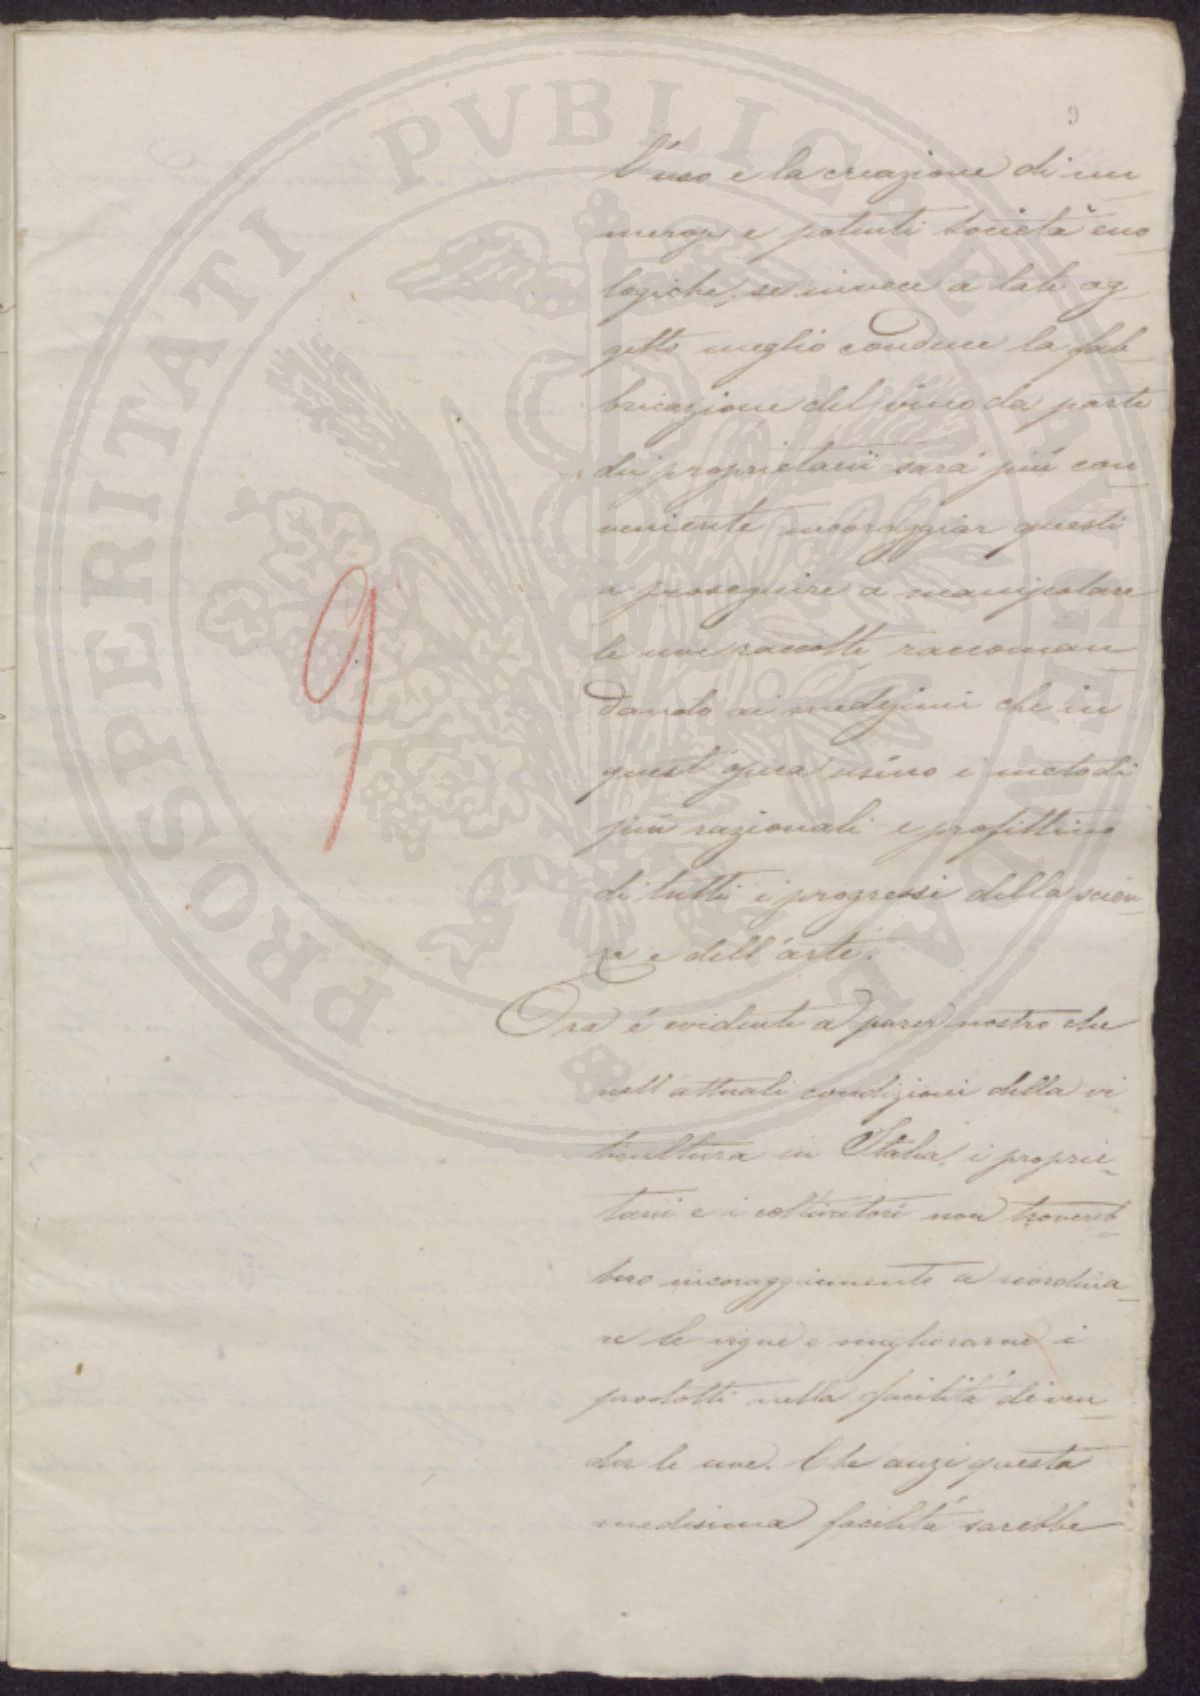 9
l'uso e la creazione di nu-
merose e potenti società eno-
logiche, se invece a tale og-
getto meglio conduce la fab-
bricazione del vino da parte
dei proprietarii sarà più con-
veniente incoraggiar questi
a proseguire a manipolare
le uve raccolte raccoman-
dando ai medesimi che in
quest'opera usino i metodi
più razionali e profittino
di tutti i progressi della scien-
za e dell'arte.
Ora é evidente a parer nostro che
nell'attuali condizioni della vi
ticultura in Italia, i proprie-
tarii e i coltivatori non trovereb-
bero incoraggiamento a riordina-
re le vigne e migliorarne i
prodotti nella facilità di ven-
der le uve. Che anzi questa
medesima facilità sarebbe
9
PROSPERITATI PVBLICAE AVGENDAE